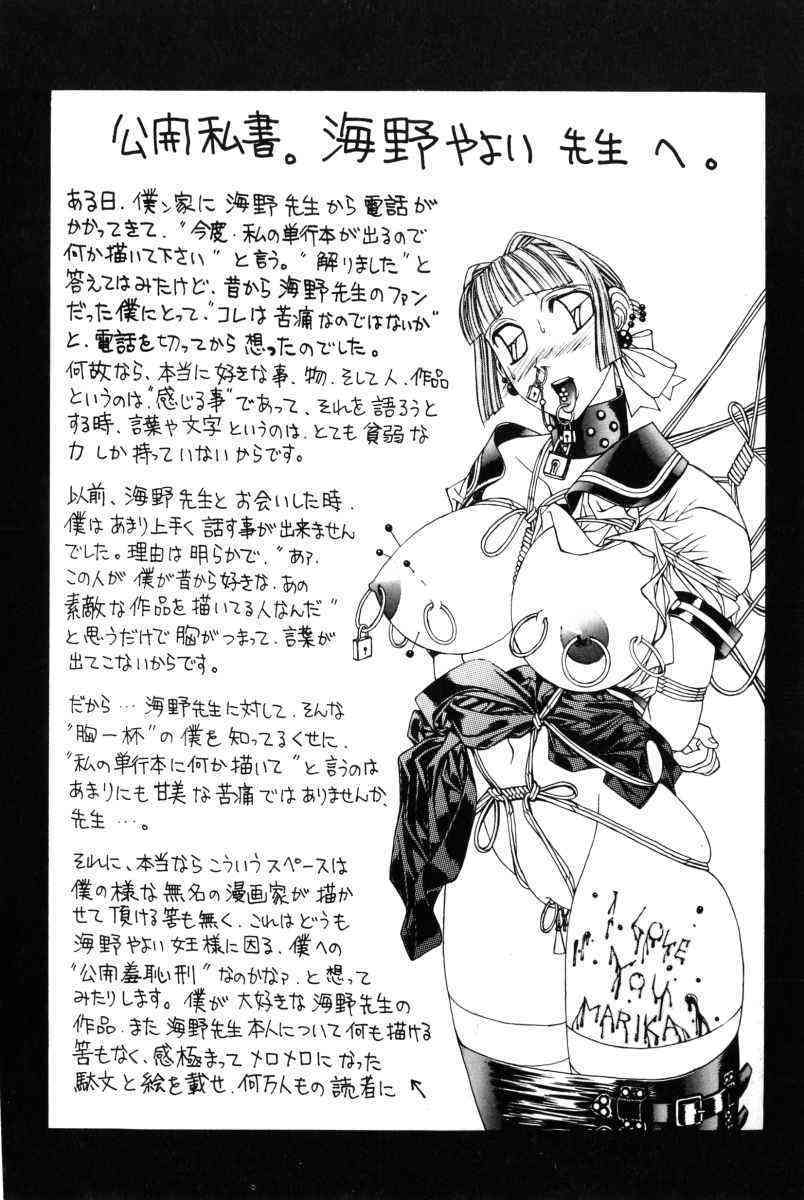 公開私書。海野やよい 先生 へ。
ある日、僕ン家に 海野先生から電話が
かかってきて、“今度、私の単行本が出るので
何か描いて下さい” と言う。“解りました”と
答えてはみたけど、昔から海野先生のファン
だった僕にとって、“コレは苦痛なのではないか”
と、電話を切ってから想ったのでした。
何故なら、本当に好きな事、物、そして人、作品
というのは、“感じる事”であって、それを語ろうと
する時、言葉や文字というのは、とても貧弱な
力しか持っていないからです。
以前、海野先生とお会いした時、
僕はあまり上手く話す事が出来ません
でした。理由は明らかで、“あァ、
この人が僕が昔から好きな、あの
素敵な作品を描いてる人なんだ”
と思うだけで胸がつまって、言葉が
出てこないからです。
だから… 海野先生に対して、そんな
“胸一杯”の僕を知ってるくせに、
“私の単行本に何か描いて”と言うのは
あまりにも甘美な苦痛ではありませんか、
先生 …。
それに、本当ならこういうスペースは
僕の様な無名の漫画家が描か
せて頂ける筈も無く、これはどうも
海野やよい女王様に因る、僕への
“公開羞恥刑”なのかなァ、と想って
みたりします。僕が大好きな海野先生の
作品、また海野先生本人について何も描ける
筈もなく、感極まってメロメロになった
駄文と絵を載せ、何万人もの読者に ↖
I LOVE
YOU
MARIKA